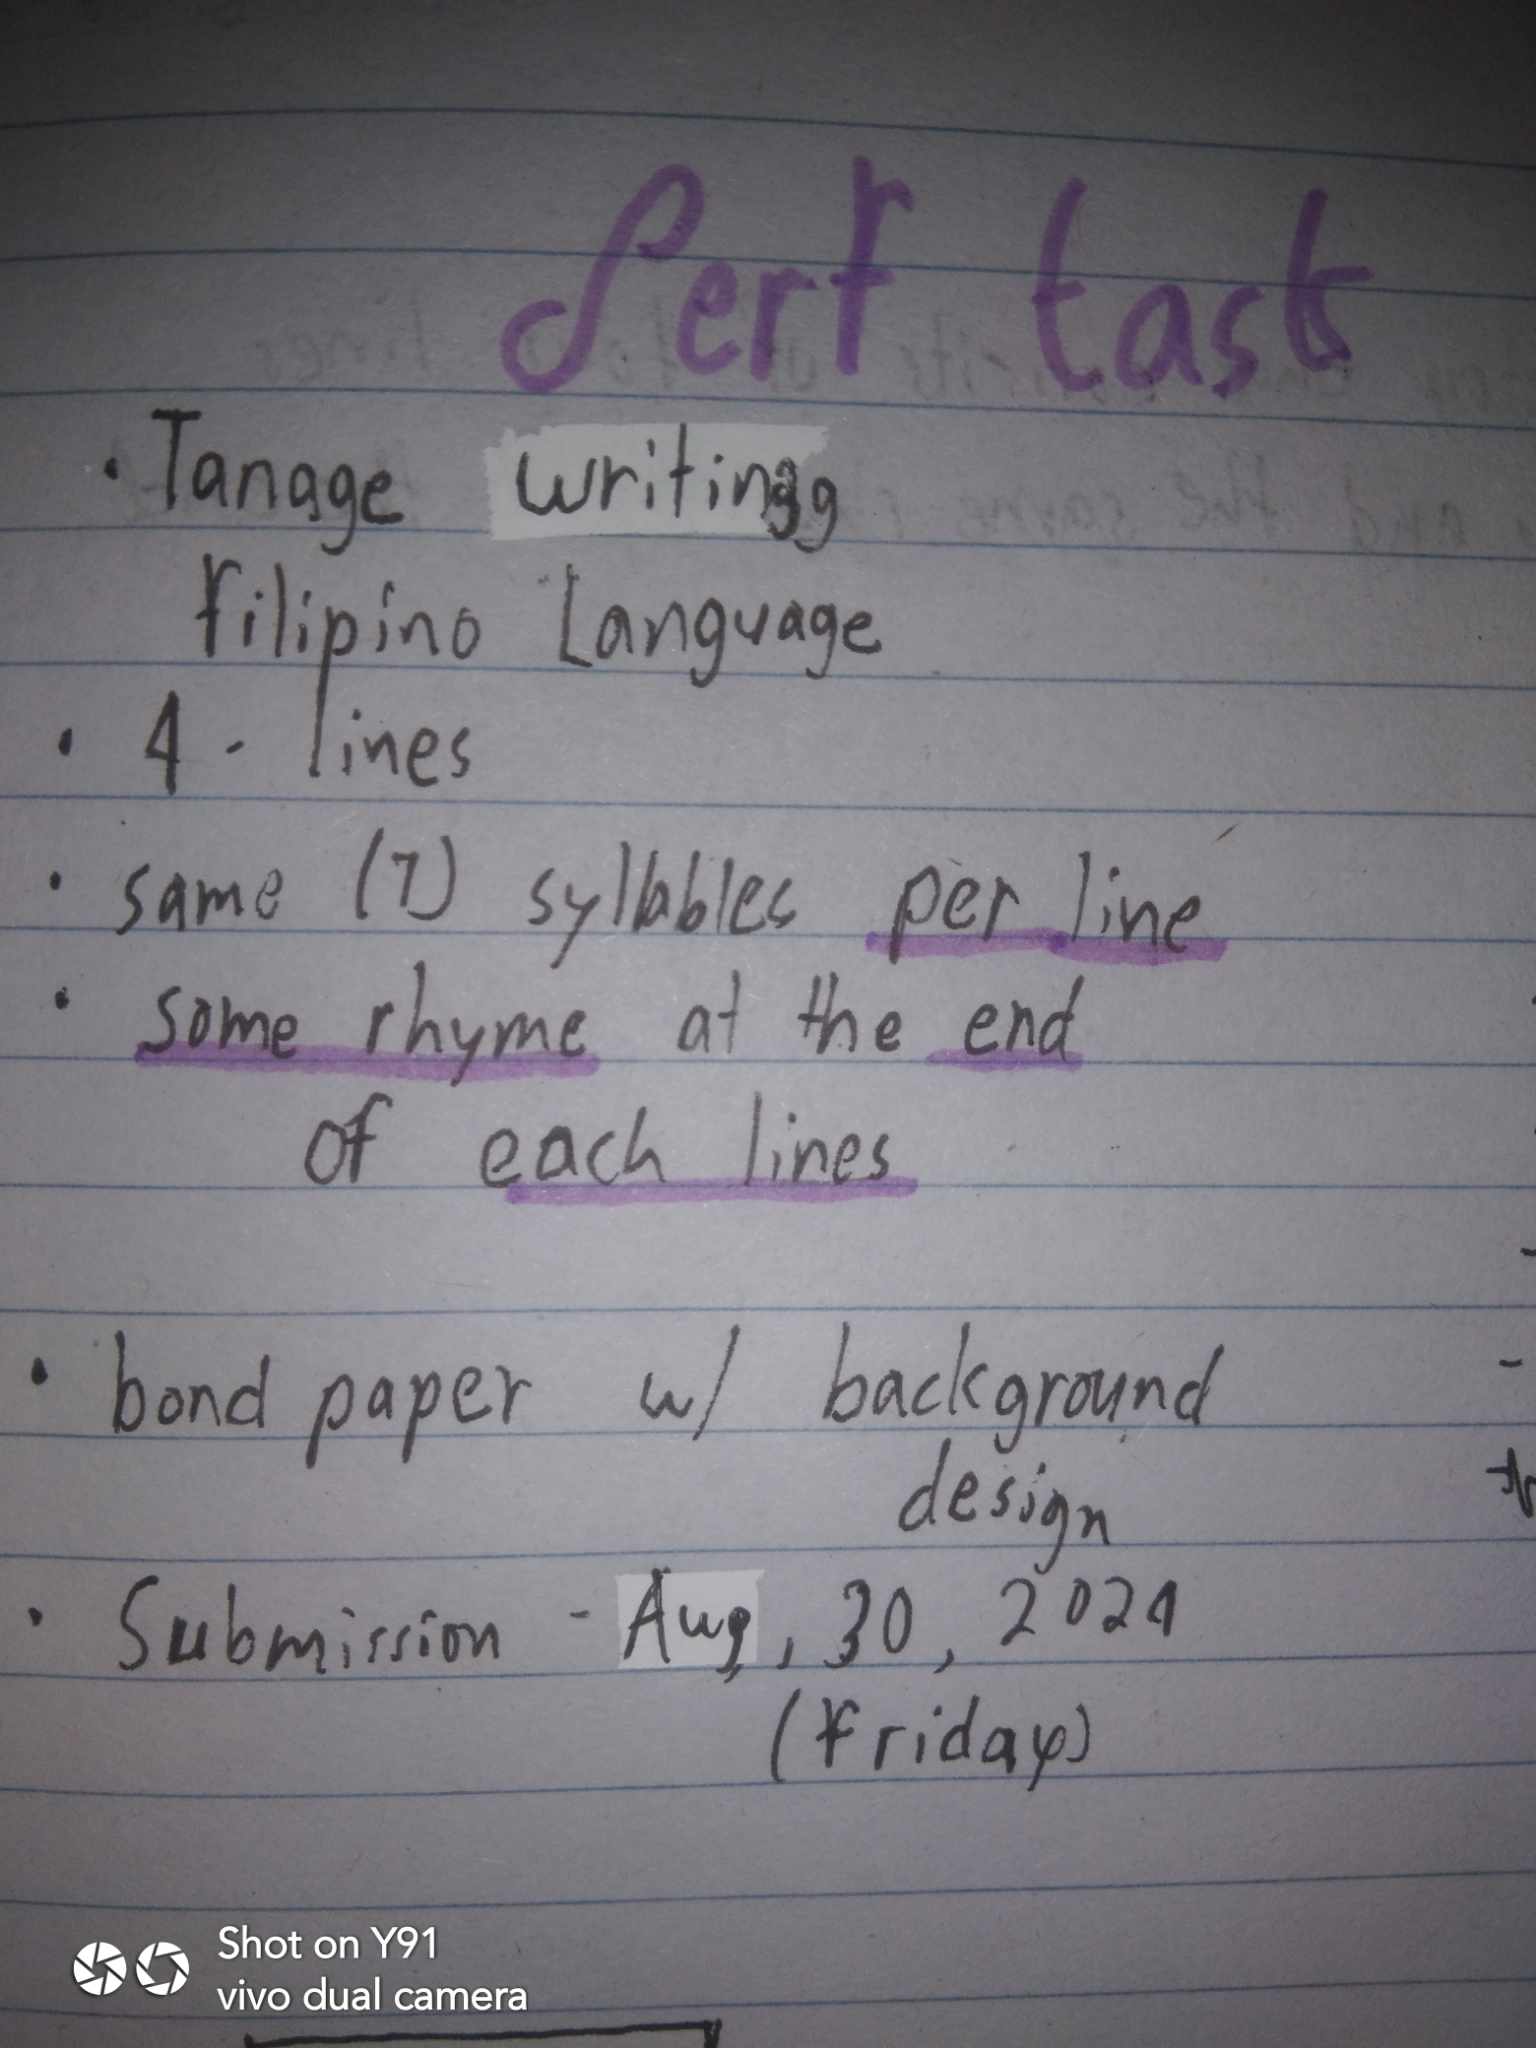 Perf task
• Tanage writingg
Filipino Language
• 4 - lines
• same (7) syllables per line
• some rhyme at the end
of each lines
• bond paper w/ background
design
• Submission - Aug, 30, 2024
(Friday)
Shot on Y91
vivo dual camera